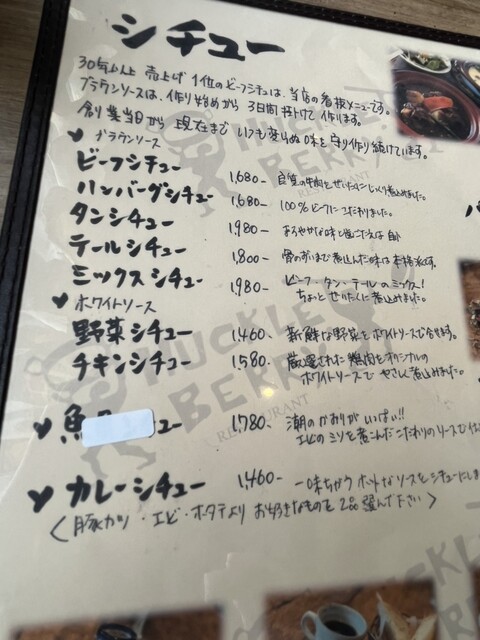 シチュー
30年以上 売上げ1位のビーフシチューは、当店の看板メニューです。
ブラウンソースは、作り始めから 3日間掛けて 作ります。
創業当日から 現在まで いつも変らぬ味を守り作り続けています。
ブラウンソース
ビーフシチュー 1,680- 良質の牛肉をぜいたくにじっくり煮込みました。
ハンバーグシチュー 1,680- 100%ビーフにこだわりました。
タンシチュー 1,980- まろやかな味と歯ごたえは
テールシチュー 1,800- 骨のずいまで煮込んだ味は本格派です。
ミックスシチュー 1,980- ビーフ・タン・テールのミックス!
ちょっとぜいたくに煮込みました。
ホワイトソース
野菜シチュー 1,460- 新鮮な野菜をホワイトソースで合せます。
チキンシチュー 1,580- 厳選された鶏肉をオリジナルの
ホワイトソースで やさしく煮込みました。
魚 ュー 1,780- 潮のかおりがいっぱい!!
エビのミソを煮こんだこだわりのソースで仕
カレーシチュー 1,460- 一味ちがうホットなソースをシチューにしま
〈豚カツ・エビ・ホタテより お好きなものを 2品選んで下さい〉
HUCKLE
BERRY
RESTAURANT
HUCKLE
BERRY
RESTAURANT
HUCKLE
BERRY